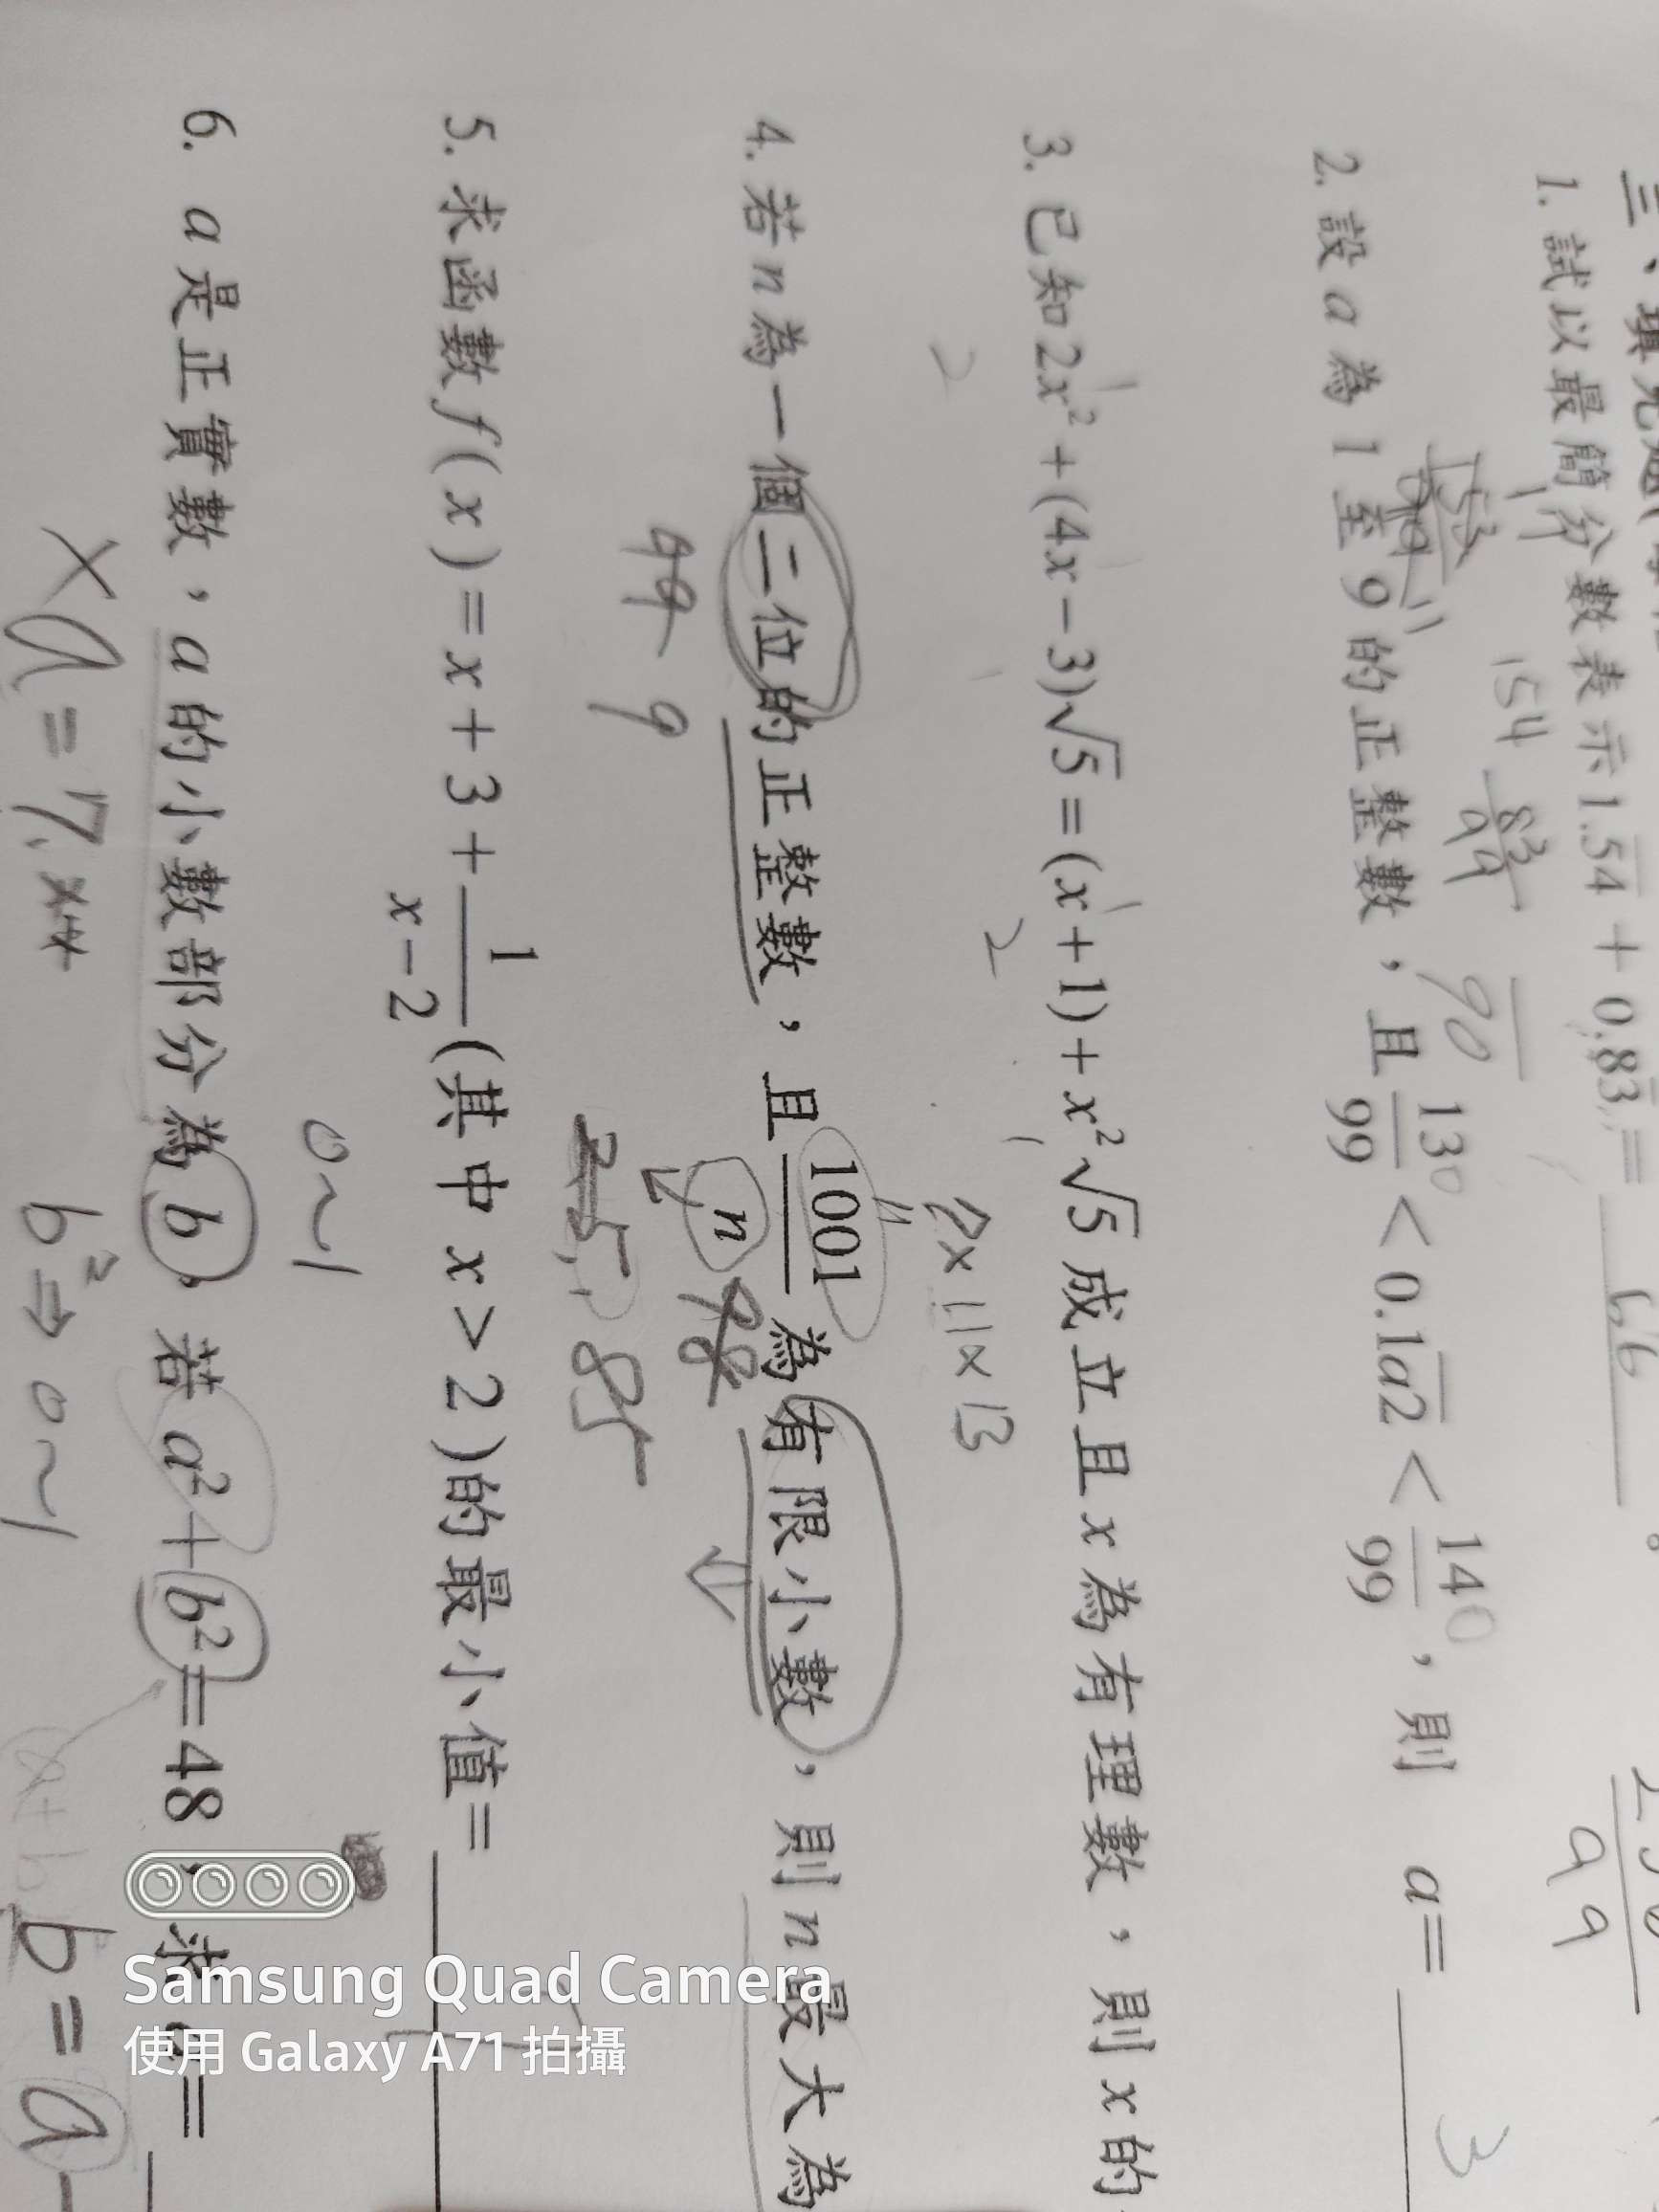 1. 試以最簡分數表示1.54 + 0.83 =
154
83
99
90
2. 設 a 為 1 至 9 的正整數，且 130/99 < 0.1a2 < 140/99 ，則 a=
3
3. 已知2x² + (4x − 3)√5 = (x + 1) + x²√5 成立且 x 為有理數，則 x 的
2
1
2
7×11×13
4. 若 n 為一個二位的正整數，且 1001/n 為有限小數，則 n 最大為
98
99 9
85
5. 求函數 f ( x ) = x + 3 + 1/(x − 2) (其中 x > 2 )的最小值 =
0~1
6. a 是正實數，a 的小數部分為 b，若 a² + b² = 48，求 a =
a = 7.
b² ⇒ 0~1
b = a −
Samsung Quad Camera
使用 Galaxy A71 拍攝